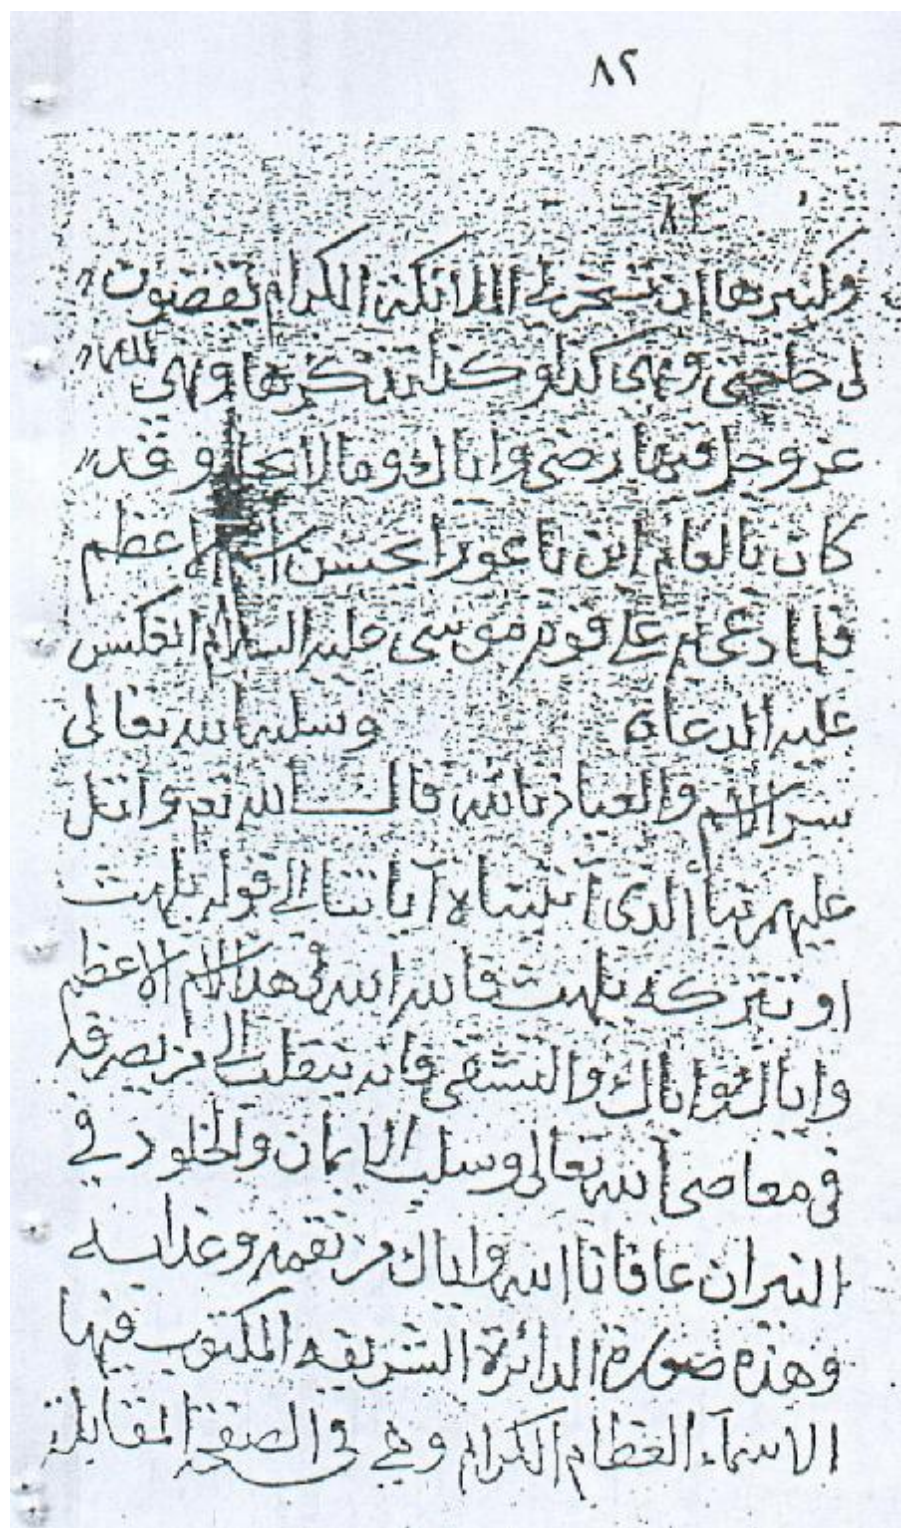 ٨٢
٨٢
وكسرها ان تسخر لي الملائكة الكرام يقضون
لى حاجتى وهى كذا وكذا تذكرها وهى لله
عز وجل فيما رضى واياك وما لا يجاوز فقد
كان بالعام ابن باعورا يحسن الاسم الاعظم
فلما دعى به على قوم موسى عليه السلام انعكس
عليه الدعاء وسلبه الله تعالى
سر الاسم والعياذ بالله قال الله تعم واتل
عليهم نبأ الذى آتيناه آياتنا الى قوله يلهث
او تتركه يلهث فالله الله فى هذا الاسم الاعظم
واياك واياك والتشفى فانه ينقلب الى من يصرفه
فى معاصى الله تعالى وسلب الايمان والخلود في
النيران عافانا الله واياك من نقمه وعذابه
وهذه صورة الدائرة الشريفه المكتوب فيها
الاسماء العظام الكرام وهي في الصفحة المقابلة